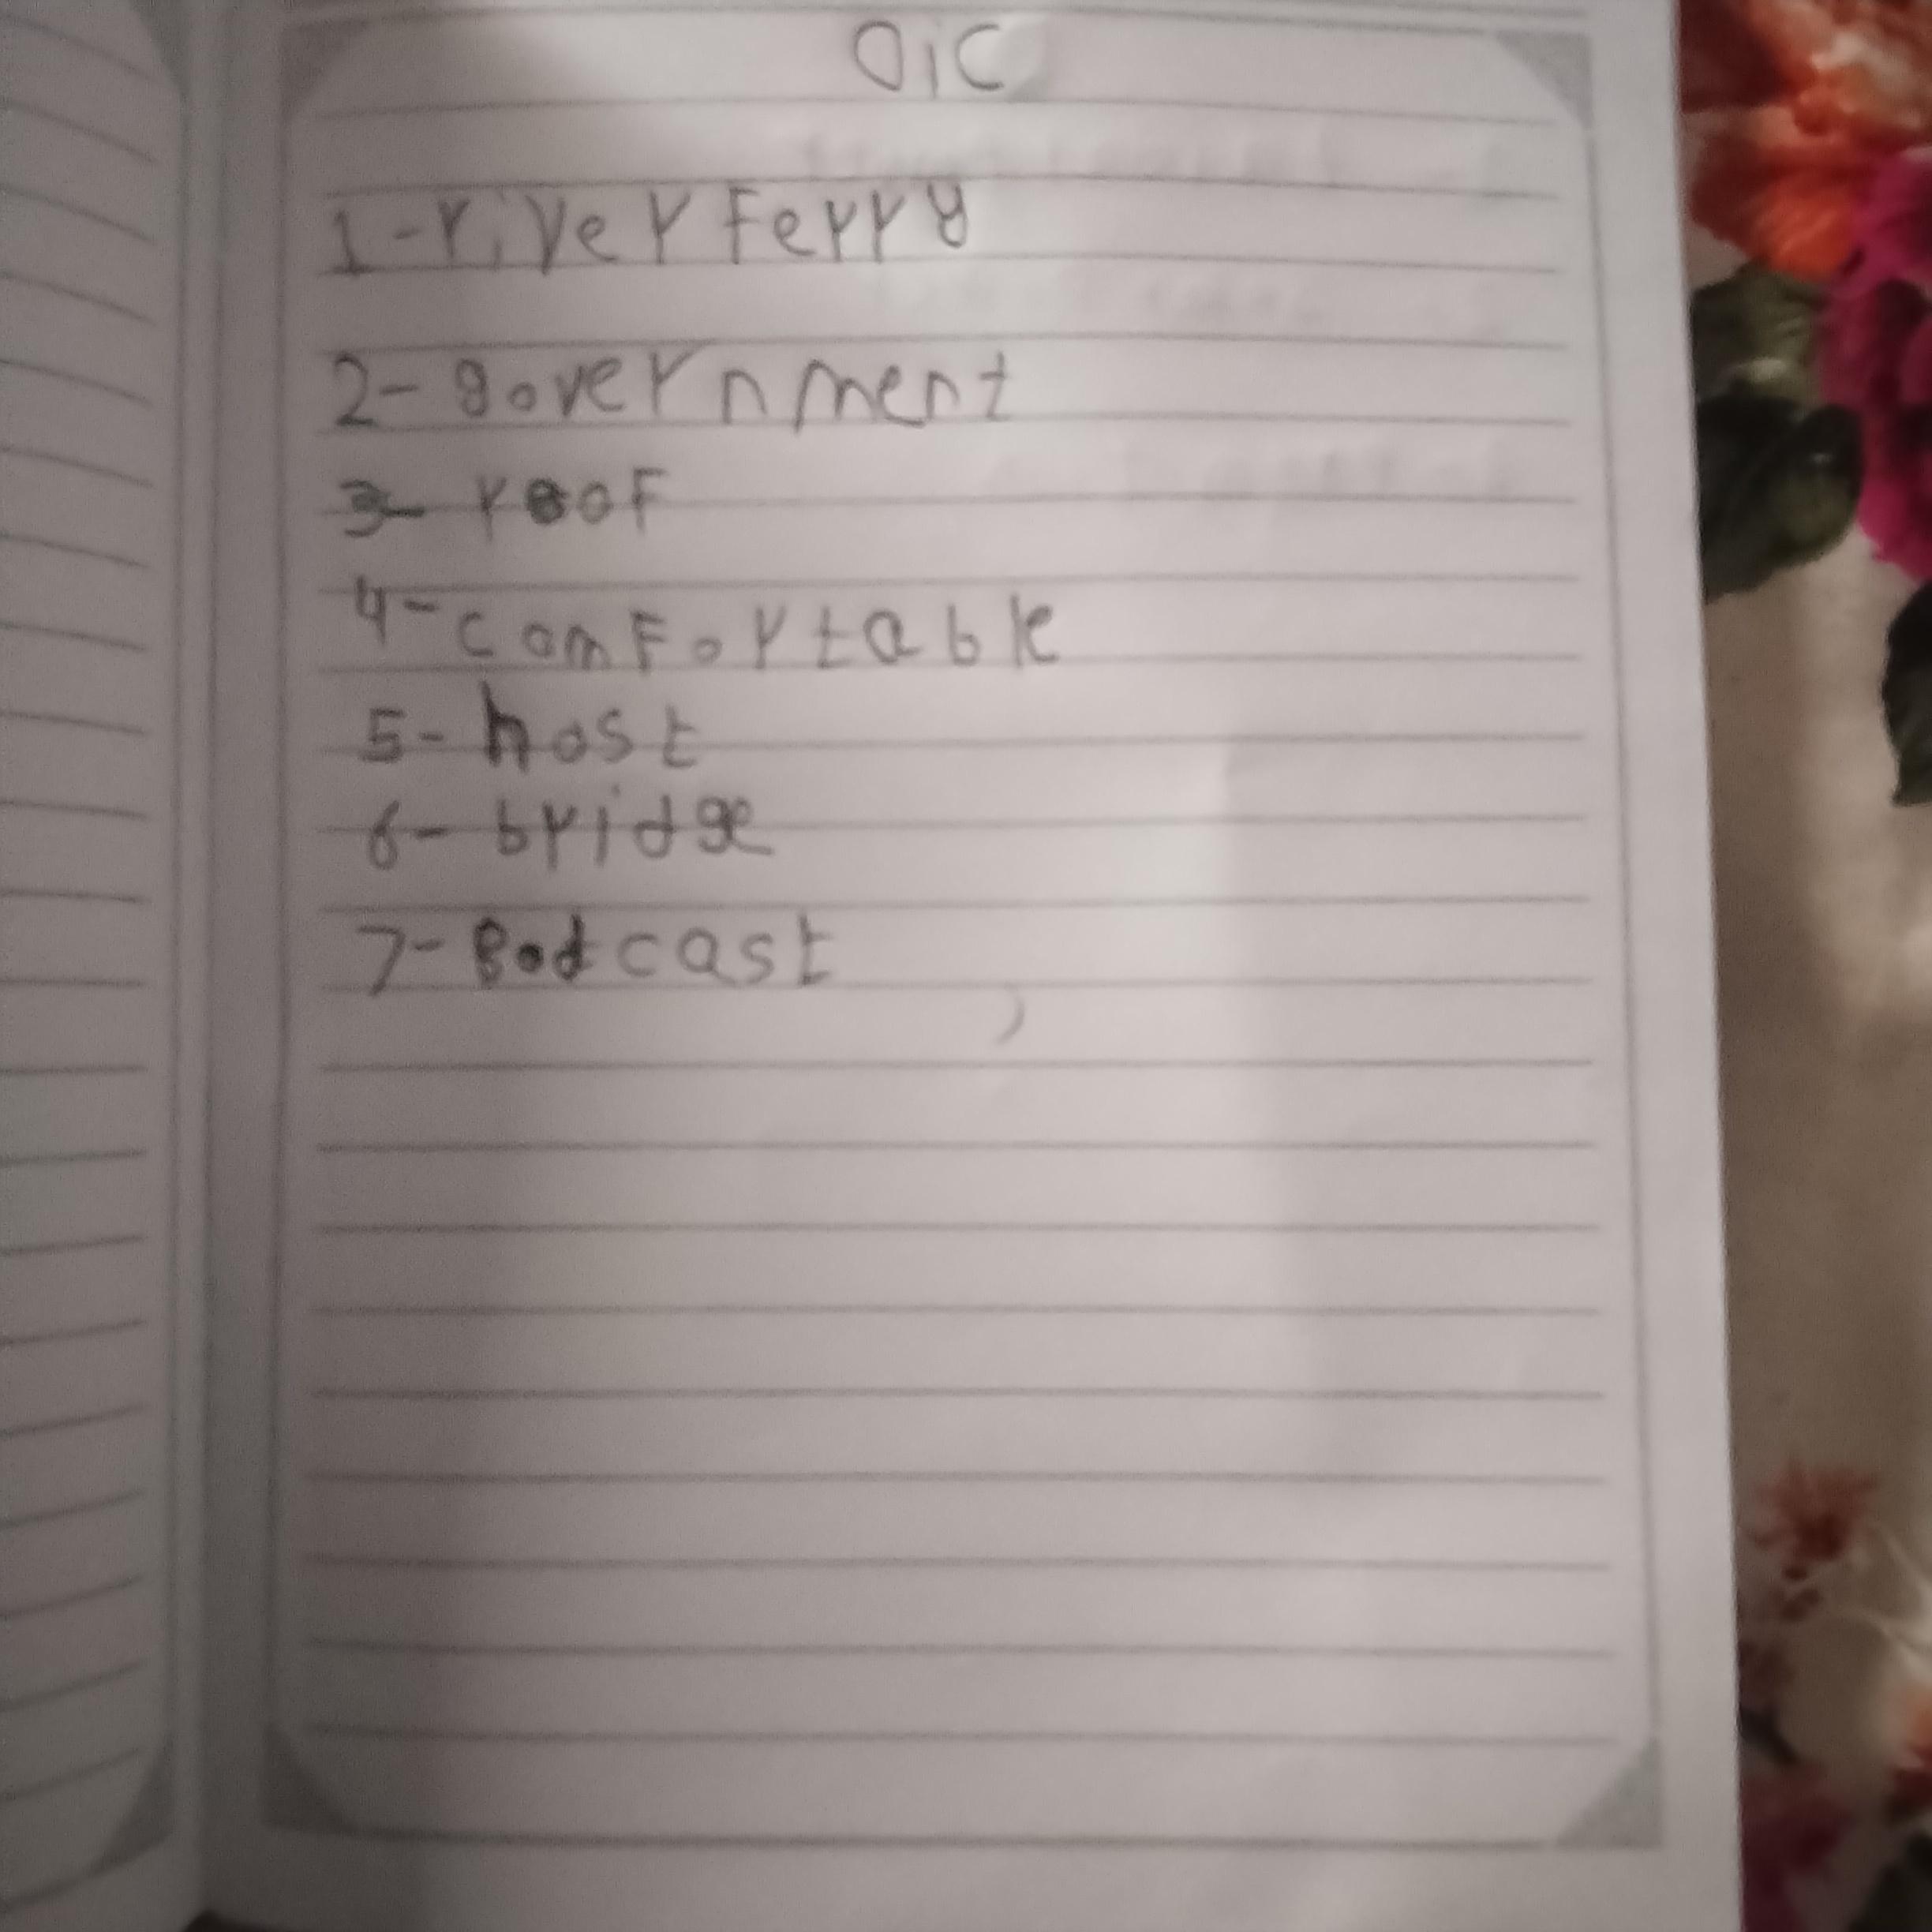 Dic
1-river Ferry
2- government
3- rooF
4- comFortable
5- host
6- bridge
7- Bodcast